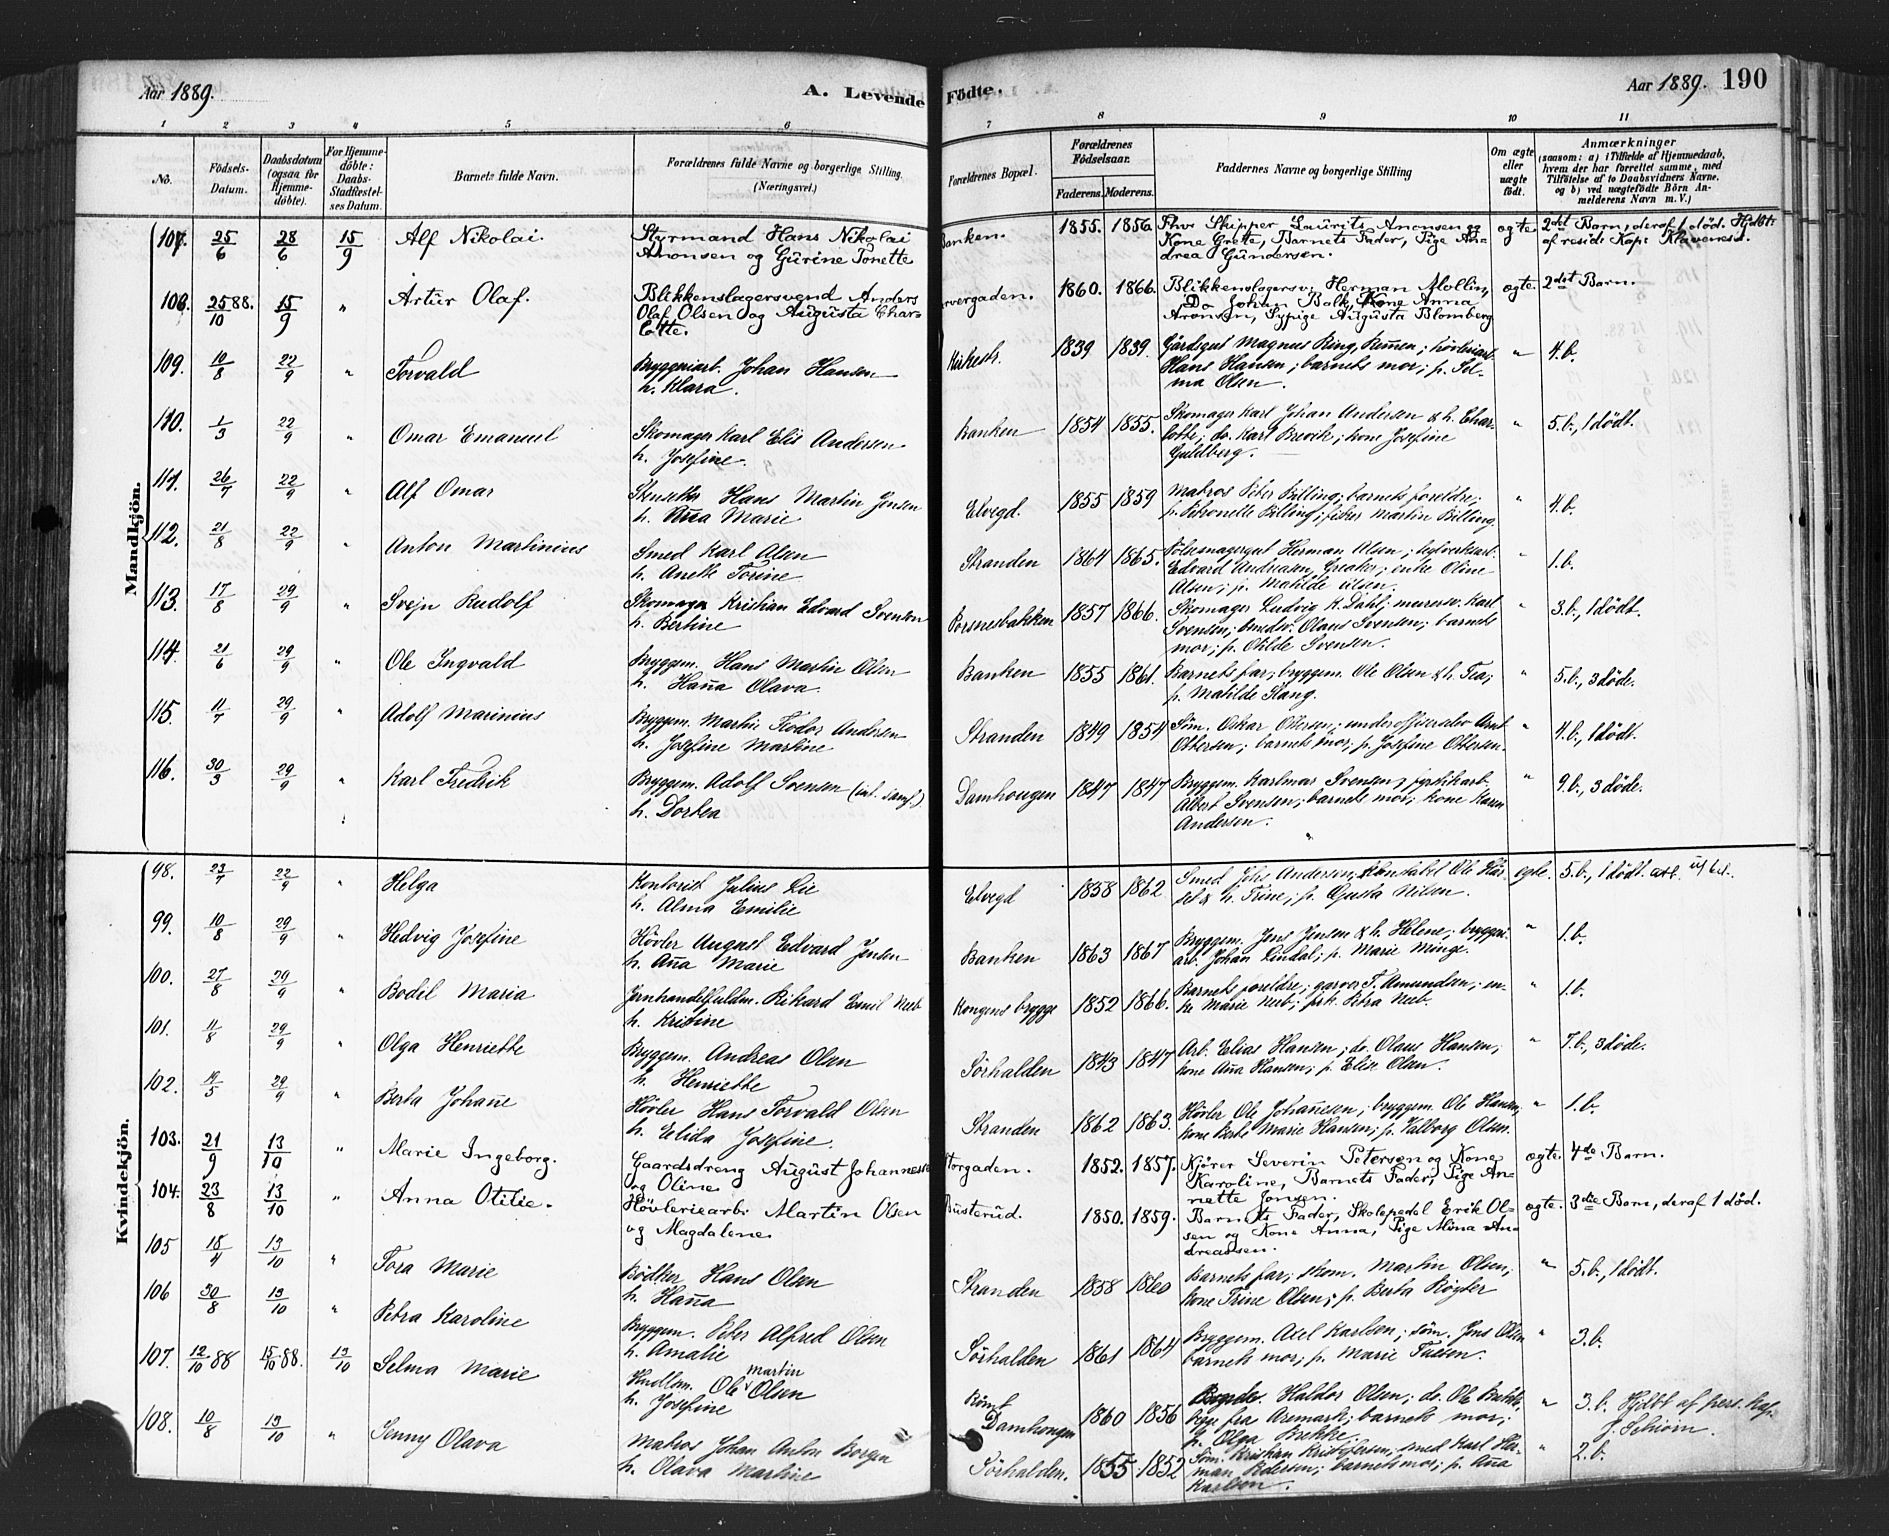 Aar 1889.
A. Levende
Födte.
Aar 1889. 190
1 2 3 4 5 6 7 8 9 10 11
No.
Födsels-
Datum.
Daabsdatum
(ogsaa for
Hjemme-
döbte).
For Hjemme-
döbte:
Daabs-
Stadfæstel-
ses Datum.
Barnets fulde Navn.
Forældrenes fulde Navne og borgerlige Stilling.
(Næringsvei.)
Forældrenes Bopæl.
Forældrenes
Födselsaar.
Faderens. Moderens.
Faddernes Navne og borgerlige Stilling
Om ægte
eller
uægte
födt.
Anmærkninger
(saasom: a) i Tilfælde af Hjemmedaab,
hvem der har forrettet samme, med
Tilföielse af to Daabsvidners Navne,
og b) ved uægtefödte Börn An-
melderens Navn m. V.)
Mandkjön.
107. 25/6 28/6 15/9 Alf Nikolai. Styrmand Hans Nikolai
Aronsen og Gurine Tonette
Banken. 1855. 1856. Fhv. Skipper Laurits Aronsen og
Kone Grette, Barnets Fader, Pige An-
drea Gundersen.
ægte 2det Barn, deraf 1 död. Hjdbt.
af resid. Kap. Klaveness.
108. 25/10 88. 15/9 " Artur Olaf. Blikkenslagersvend Anders
Olaf Olsen og Augusta Char-
lotte.
1860. 1866. Blikkenslagersv. Herman Mollin,
Do Johan Balk, Kone Anna
Aronsen, Sypige Augusta Blomberg
ægte. 2det Barn.
109. 10/8 22/9 " Torvald Bryggeriarb. Johan Hansen
h. Klara.
Kirkestr. 1839 1839. Gårdsgut Magnus Ring, Rømen; høvleriarb.
Hans Hansen; barnets mor; p. Sel-
ma Olsen.
" 4.b.
110. 1/3 22/9 " Omar Emanuel Skomager Karl Elis Andersen
h. Josefine.
Banken 1854 1855. Skomager Karl Johan Andersen & h. Char-
lotte; do. Karl Brevik; kone Josefine
Guldberg.
" 5.b., 1 dödt.
111. 26/7 22/9 " Alf Omar Stensetter Hans Martin Jensen
h. Anna Marie
Elvegd. 1855 1859 Matros Peter Billing; barnets foreldre;
p. Petronelle Billing; fisker Martin Billing.
" 4.b.
112. 21/8 22/9 " Anton Martinius Smed Karl Olsen
h. Anette Torine
Stranden 1864 1865. Pølsemagergut Herman Olsen; teglverksarb.
Edvard Andreasen, Greaker; enke Oline
Olsen; p. Matilde Olsen.
" 1.b.
113. 17/8 29/9 " Svejn Rudolf Skomager Kristian Edvard Svensen
h. Bertine
Porsnesbakken 1857 1866. Skomager Ludvig K. Dahl; murersv. Karl
Svensen; smedsv. Olaus Svensen; barnets
mor; p. Otilde Svensen.
" 3.b., 1 dödt.
114. 21/6 29/9 " Ole Ingvald Bryggem. Hans Martin Olsen
h. Hanna Olava.
Banken 1855 1861. Barnets far; bryggem. Ole Olsen & h. Tea;
p. Matilde Stang.
" 5.b., 3 døde.
115. 11/7 29/9 " Adolf Marinius Bryggem. Martin Teodor Andersen
h. Josefine Martine
Stranden 1849 1854 Söm. Oskar Ottersen; underofficerselev Arnt
Ottersen; barnets mor; p. Josefine Ottersen.
" 4.b., 1 dödt.
116. 30/3 29/9 " Karl Fredrik Bryggem. Adolf Svensen (int. samf.)
h. Dortea
Damhougen 1847 1847 Bryggem. Karlmar Svensen; fyrstikarb.
Albert Svensen; barnets mor; kone Karen
Andersen.
" 9.b., 3 døde.
Kvindekjön.
98. 23/7 22/9 " Helga Kontorist Julius Lie
h. Alma Emilie
Elvegd 1858 1862 Smed Johs Andersen; konstabel Ole Hår-
set & h. Trine; p. Gusta Nilsen.
ægte. 5.b., 1 dödt.
99. 10/8 29/9 " Hedvig Josefine Høvler August Edvard Jensen
h. Anna Marie
Banken 1863 1867 Bryggem. Jens Jensen & h. Helene; bryggeri-
arb. Johan Lindal; p. Marie Minge.
" 1.b.
100. 27/8 29/9 " Bodil Maria Jernhandelfuldm. Rikard Emil Neeb
h. Kristine
Kongens brygge 1852 1866. Barnets foreldre; garver T. Amundsen; en-
ke Marie Neeb; frk. Petra Neeb.
" 1.b.
101. 11/8 29/9 " Olga Henriette Bryggem. Andreas Olsen
h. Henriette
Sørhalden 1843 1847 Arb. Elias Hansen; do. Olaus Hansen;
kone Anna Hansen; p. Elise Olsen.
" 7.b., 3 døde.
102. 19/5 29/9 " Berta Johanne Høvler Hans Torvald Olsen
h. Elida Josefine.
Stranden 1862 1863. Høvler Ole Johannesen; bryggem. Ole Hansen;
kone Berte Marie Hansen; p. Valborg Olsen.
" 1.b.
103. 21/9 13/10 " Marie Ingeborg. Gaardsdreng August Johannesse
og Oline
Storgaden. 1852. 1857. Kjörer Severin Petersen og Kone
Karoline, Barnets Fader, Pige An-
nette Jonsen.
ægte. 4de Barn.
104. 23/8 13/10 " Anna Otilie. Høvleriearb. Martin Olsen
og Magdalene
Busterud. 1850. 1859. Barnets Fader, Skolepedel Erik Ol-
sen og Kone Anna, Pige Mina An-
dreassen.
ægte. 3die Barn, deraf 1 död.
105 18/4 13/10 " Tora Marie Bødker Hans Olsen
h. Hanna
Stranden 1858 1860 Barnets far; skom. Martin Olsen;
kone Trine Olsen; p. Berta Røgler
" 5.b., 1 dödt.
106 30/8 13/10 " Petra Karoline Bryggem. Peter Alfred Olsen
h. Amalie
Sørhalden 1861 1864 Bryggem. Axel Karlsen; söm. Jens Olsen
barnets mor; p. Marie Tuesen.
" 3.b.
107. 12/10 88 15/10 88. 13/10 Selma Marie Handlsm. Ole Martin Olsen
h. Josefine
Damhougen 1860 1856 Haldor Olsen; do. Ole Bukke-
fra Aremark; barnets mor;
p. Olga Brekke.
" 3.b. Hjdbt af pers. Kap.
J. Schiorn.
108. 10/8 13/10 " Jenny Olava Matros Johan Anton Borgen
h. Olava Martine
Sørhalden. 1855 1852 Söm. Kristian Kristofersen; smed Karl Her-
man Pedersen; barnets mor; p. Anna
Karlsen.
" 2.b.